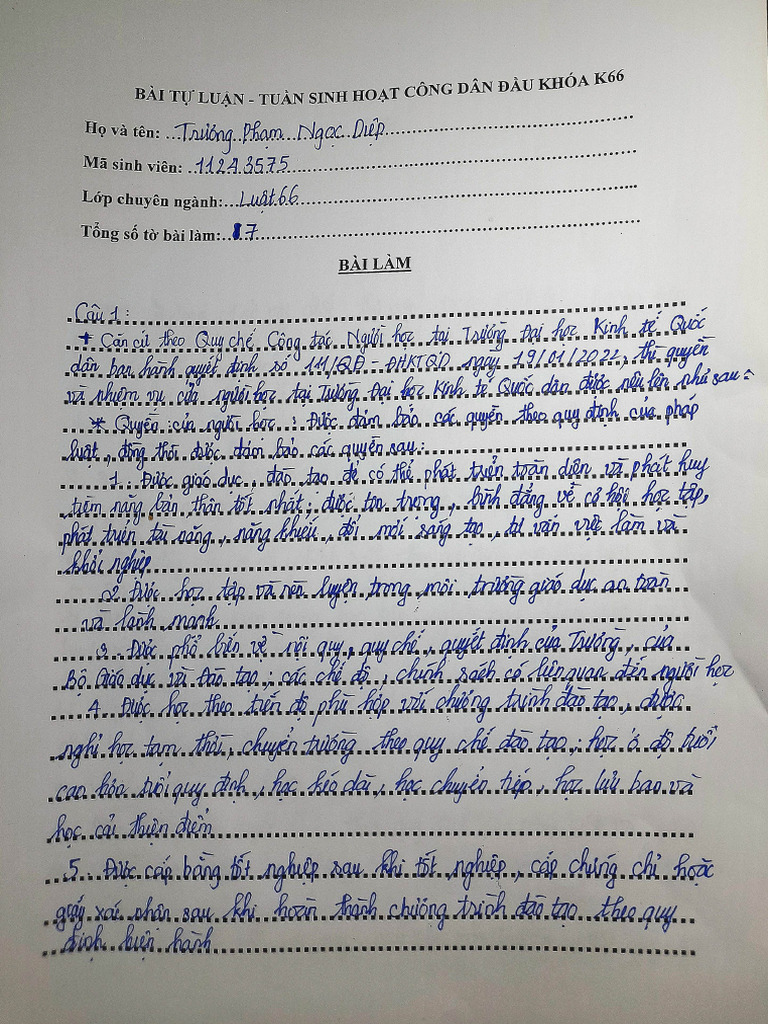 BÀI TỰ LUẬN - TUẦN SINH HOẠT CÔNG DÂN ĐẦU KHÓA K66
Họ và tên: Trương Phạm Ngọc Diệp
Mã sinh viên: 11243575
Lớp chuyên ngành: Luật 66
Tổng số tờ bài làm: 7
BÀI LÀM
Câu 1:
+ Căn cứ theo Quy chế Công tác Người học tại Trường Đại học Kinh tế Quốc
dân ban hành quyết định số 111/QĐ - ĐHKTQD ngày 19/01/2022, thì quyền
và nhiệm vụ của người học tại Trường Đại học Kinh tế Quốc dân được nêu lên như sau:
* Quyền của người học: Được đảm bảo các quyền theo quy định của pháp
luật, đồng thời được đảm bảo các quyền sau:
1. Được giáo dục, đào tạo để có thể phát triển toàn diện và phát huy
tiềm năng bản thân tốt nhất; được tôn trọng, bình đẳng về cơ hội học tập,
phát triển tài năng, năng khiếu, đổi mới sáng tạo, tư vấn việc làm và
khởi nghiệp
2. Được học tập và rèn luyện trong môi trường giáo dục an toàn
và lành mạnh
3. Được phổ biến về nội quy, quy chế, quyết định của Trường, của
Bộ Giáo dục và Đào tạo; các chế độ, chính sách có liên quan đến người học
4. Được học theo tiến độ phù hợp với chương trình đào tạo, được
nghỉ học tạm thời, chuyển trường theo quy chế đào tạo; học ở độ tuổi
cao hơn tuổi quy định, học kéo dài, học chuyển tiếp, học lưu ban và
học cải thiện điểm
5. Được cấp bằng tốt nghiệp sau khi tốt nghiệp, cấp chứng chỉ hoặc
giấy xác nhận sau khi hoàn thành chương trình đào tạo theo quy
định hiện hành